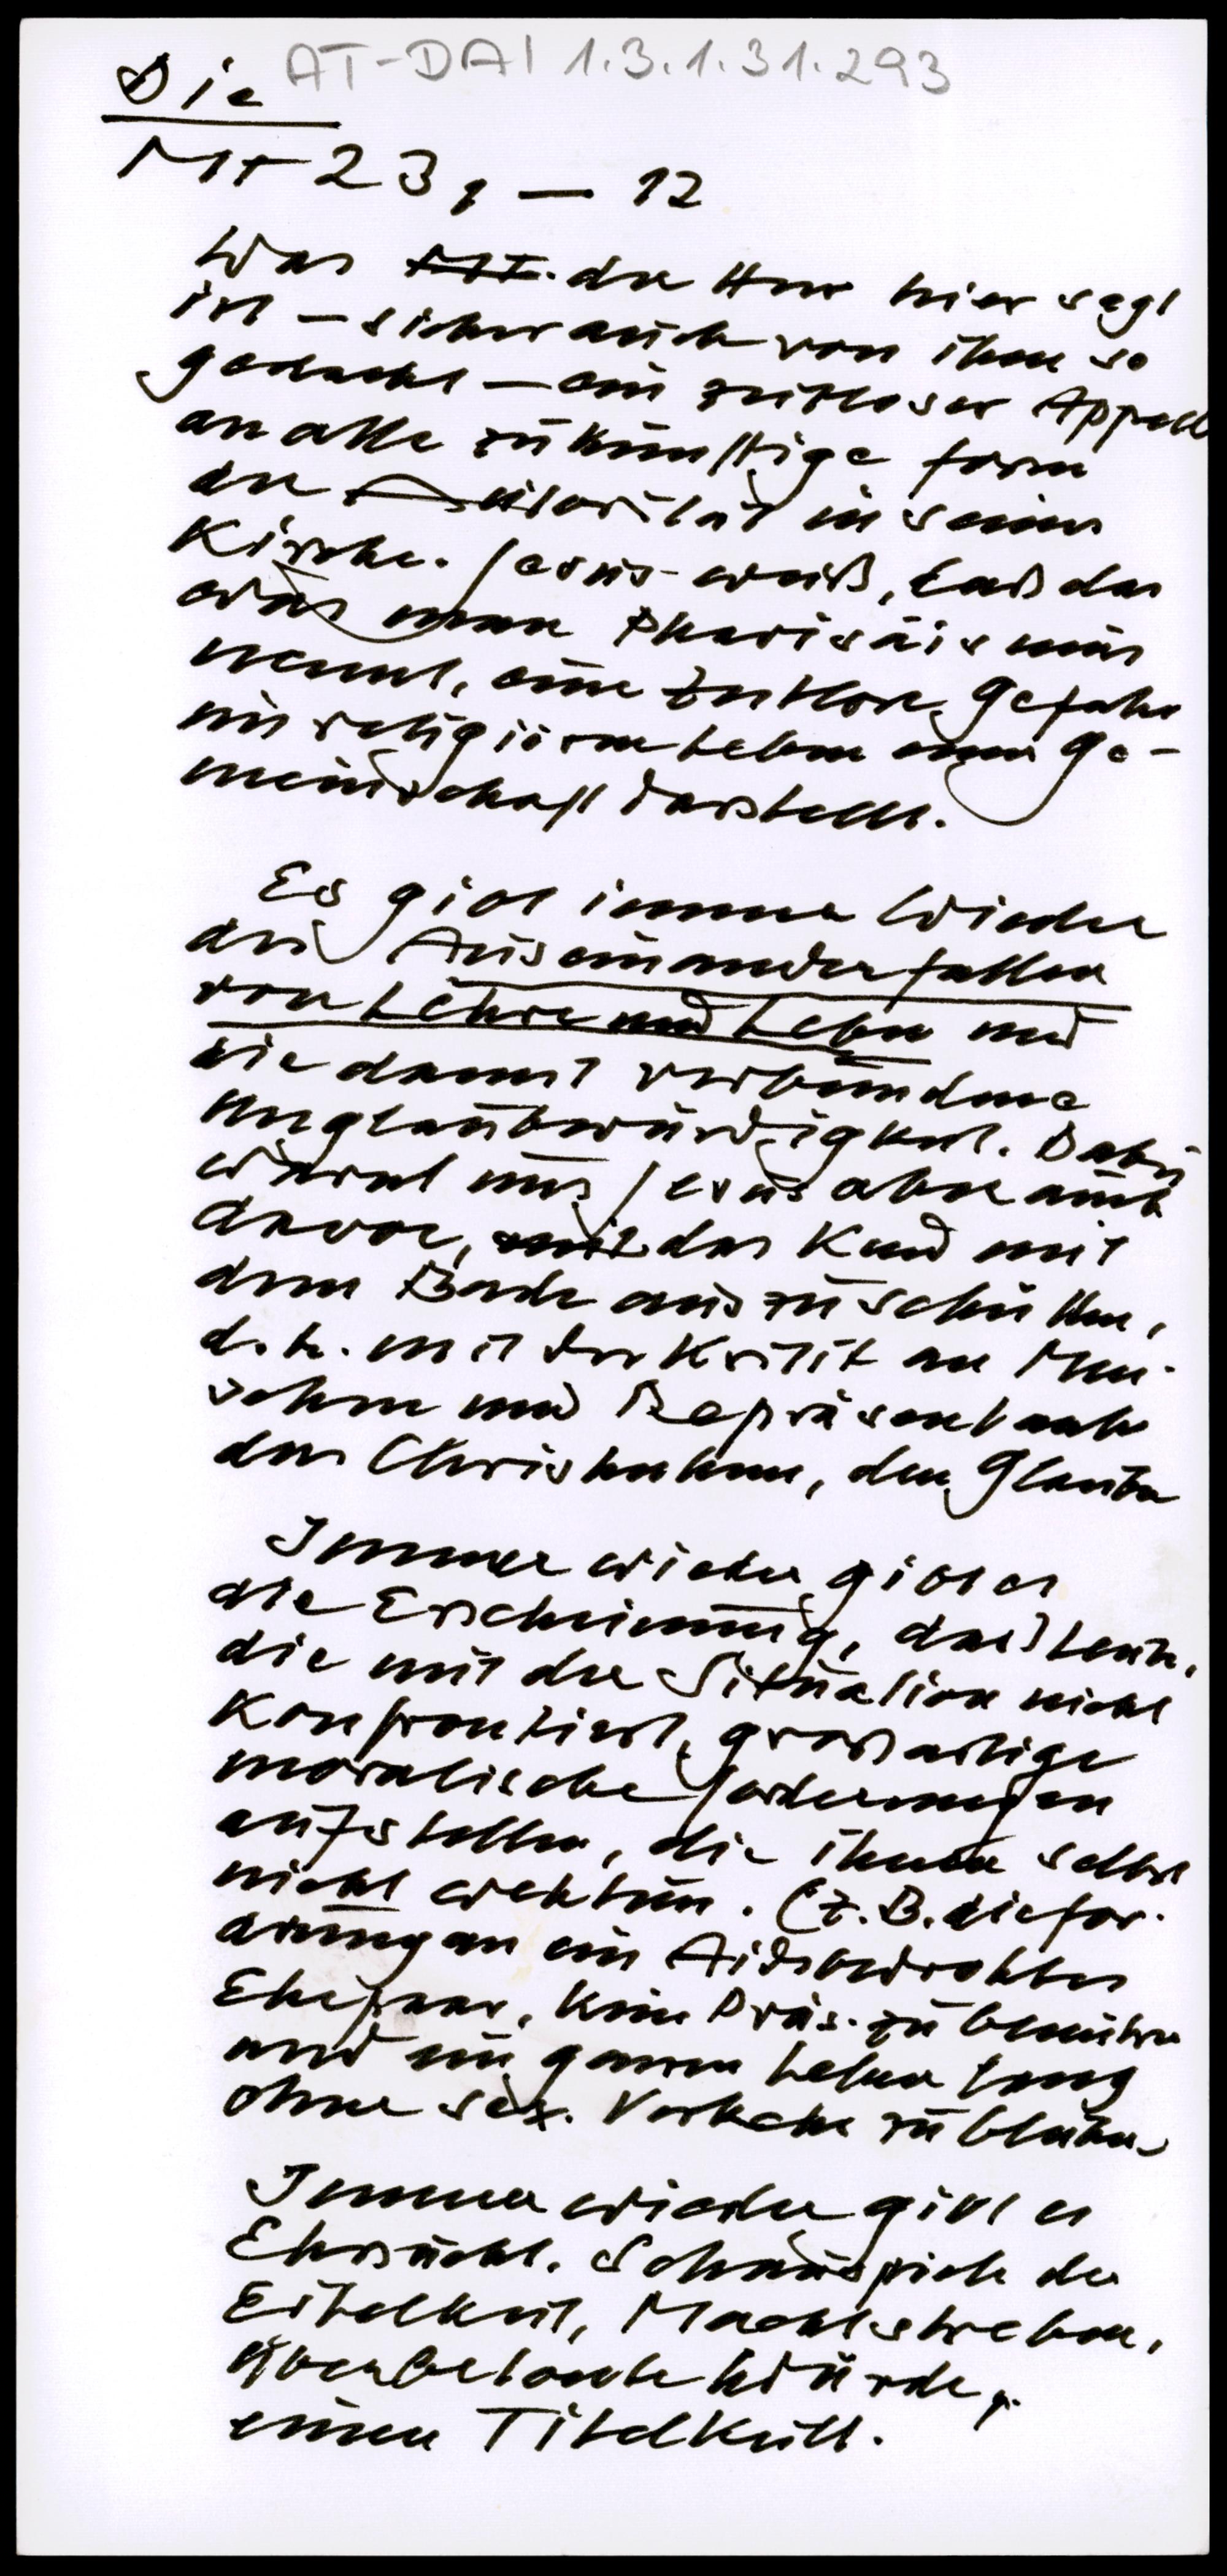 AT-DAI 1.3.1.31.293
Die
Mt 23,1 — 12
Was Mt. der Herr hier sagt
ist – sicher auch von ihm so
gedacht – ein zeitloser Appell
an alle zukünftige Form
der Autorität in seiner
Kirche. Jesus weiß, daß das
was man Pharisäismus
nennt, eine zeitlose Gefahr
im religiösen Leben einer Ge-
meinschaft darstellt.
Es gibt immer wieder
das Auseinanderfallen
von Lehre und Leben und
die damit verbundene
Unglaubwürdigkeit. Dabei
warnt uns Jesus aber auch
davor, mit das Kind mit
dem Bade auszuschütten,
d.h. mit der Kritik an Men-
schen und Repräsentanten
des Christentums, den Glauben
Immer wieder gibt es
die Erscheinung, daß Leute,
die mit der Situation nicht
konfrontiert, großartige
moralische Forderungen
aufstellen, die ihnen selbst
nicht wehtun. (z.B. die For-
derung an ein Aidsbedrohtes
Ehepaar, kein Präs. zu benützen
und ein ganzes Leben lang
ohne sex. Verkehr zu bleiben
Immer wieder gibt es
Ehrsucht. Schauspiele der
Eitelkeit, Machtstreben,
überbetonte Würde,
einen Titelkult.